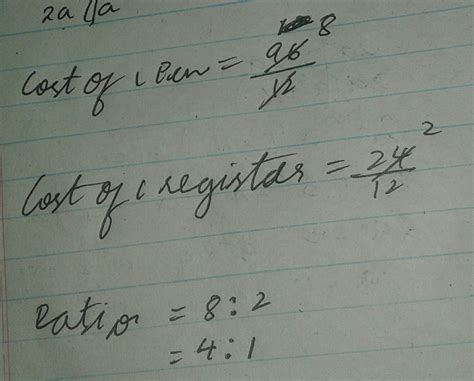 2a
Cost of 1 Pen = 96/12 8
Cost of 1 register = 24/12 2
Ratio = 8 : 2
= 4 : 1